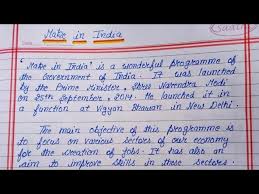 Make in India
'Make in India' is a wonderful programme of
the Government of India. It was launched
by the Prime Minister, Shree Narendra Modi
on 25th September, 2014. He launched it in
a function at Vigyan Bhawan in New Delhi.
The main objective of this programme is
to focus on various sectors of our economy
for the creation of jobs. It has also an
aim to improve skills in these sectors.